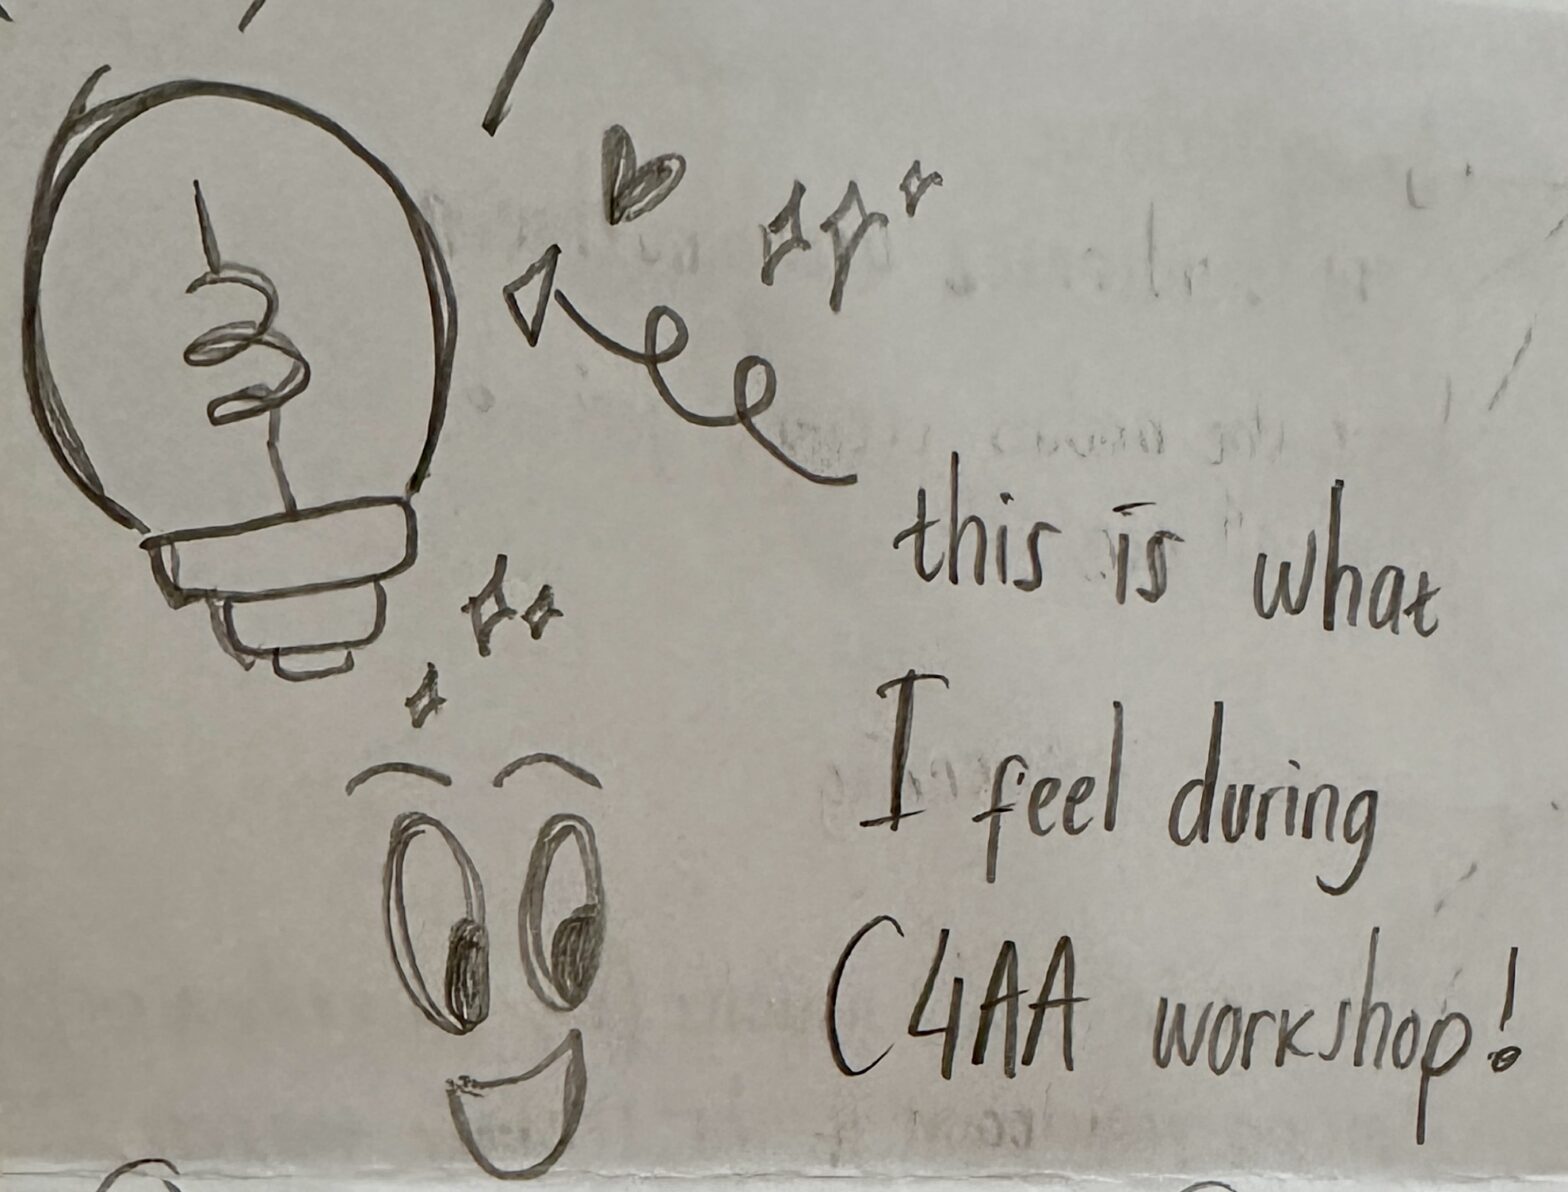 this is what
I feel during
C4AA workshop!